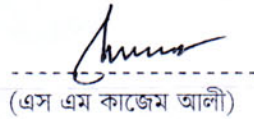 (এস এম কাজেম আলী)